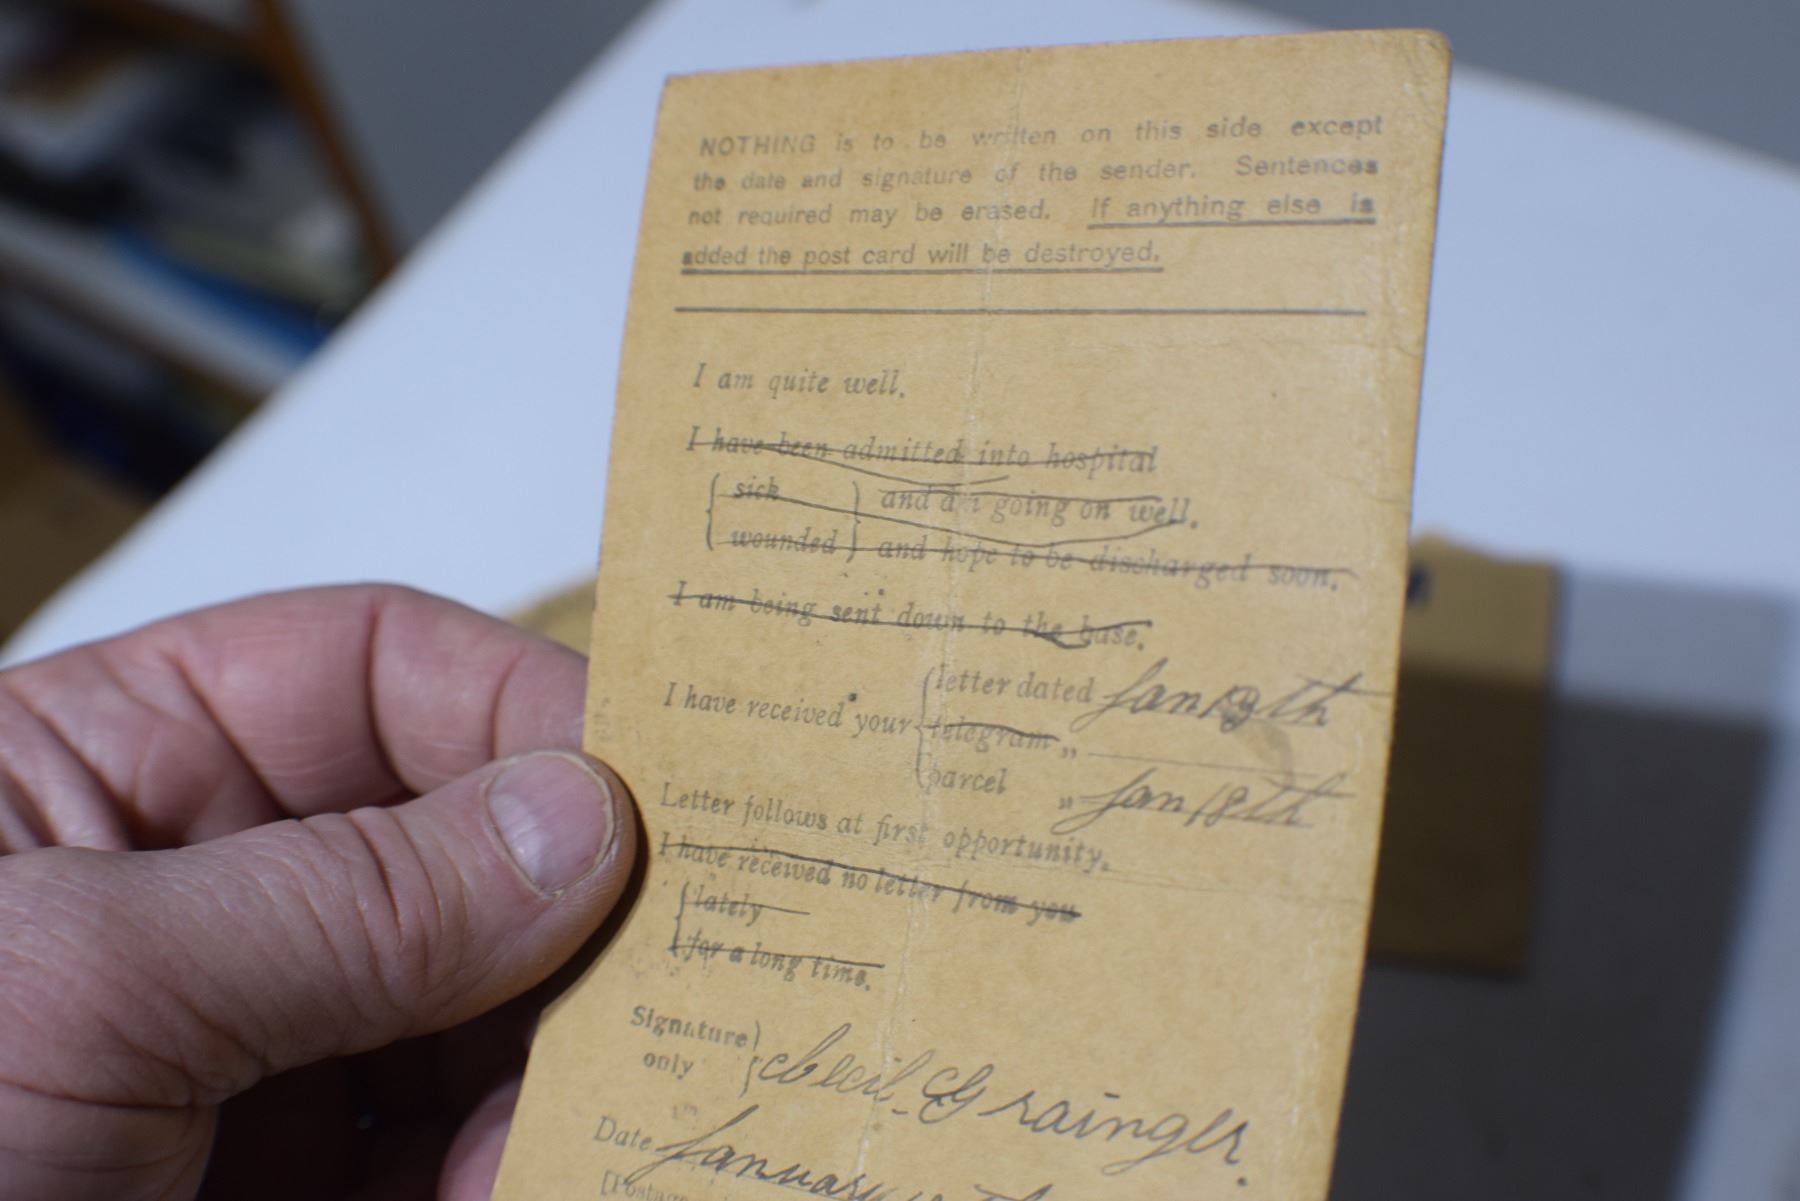 NOTHING is to be written on this side except
the date and signature of the sender. Sentences
not required may be erased. If anything else is
added the post card will be destroyed.
I am quite well.
I have been admitted into hospital
{ sick } and am going on well.
{ wounded } and hope to be discharged soon.
I am being sent down to the base.
{ letter dated Jan
I have received your { telegram „
{ parcel „ Jan 18th
Letter follows at first opportunity.
I have received no letter from you
{ lately
{ for a long time.
Signature }
only } Cecil Grainger.
Date January
[Postage